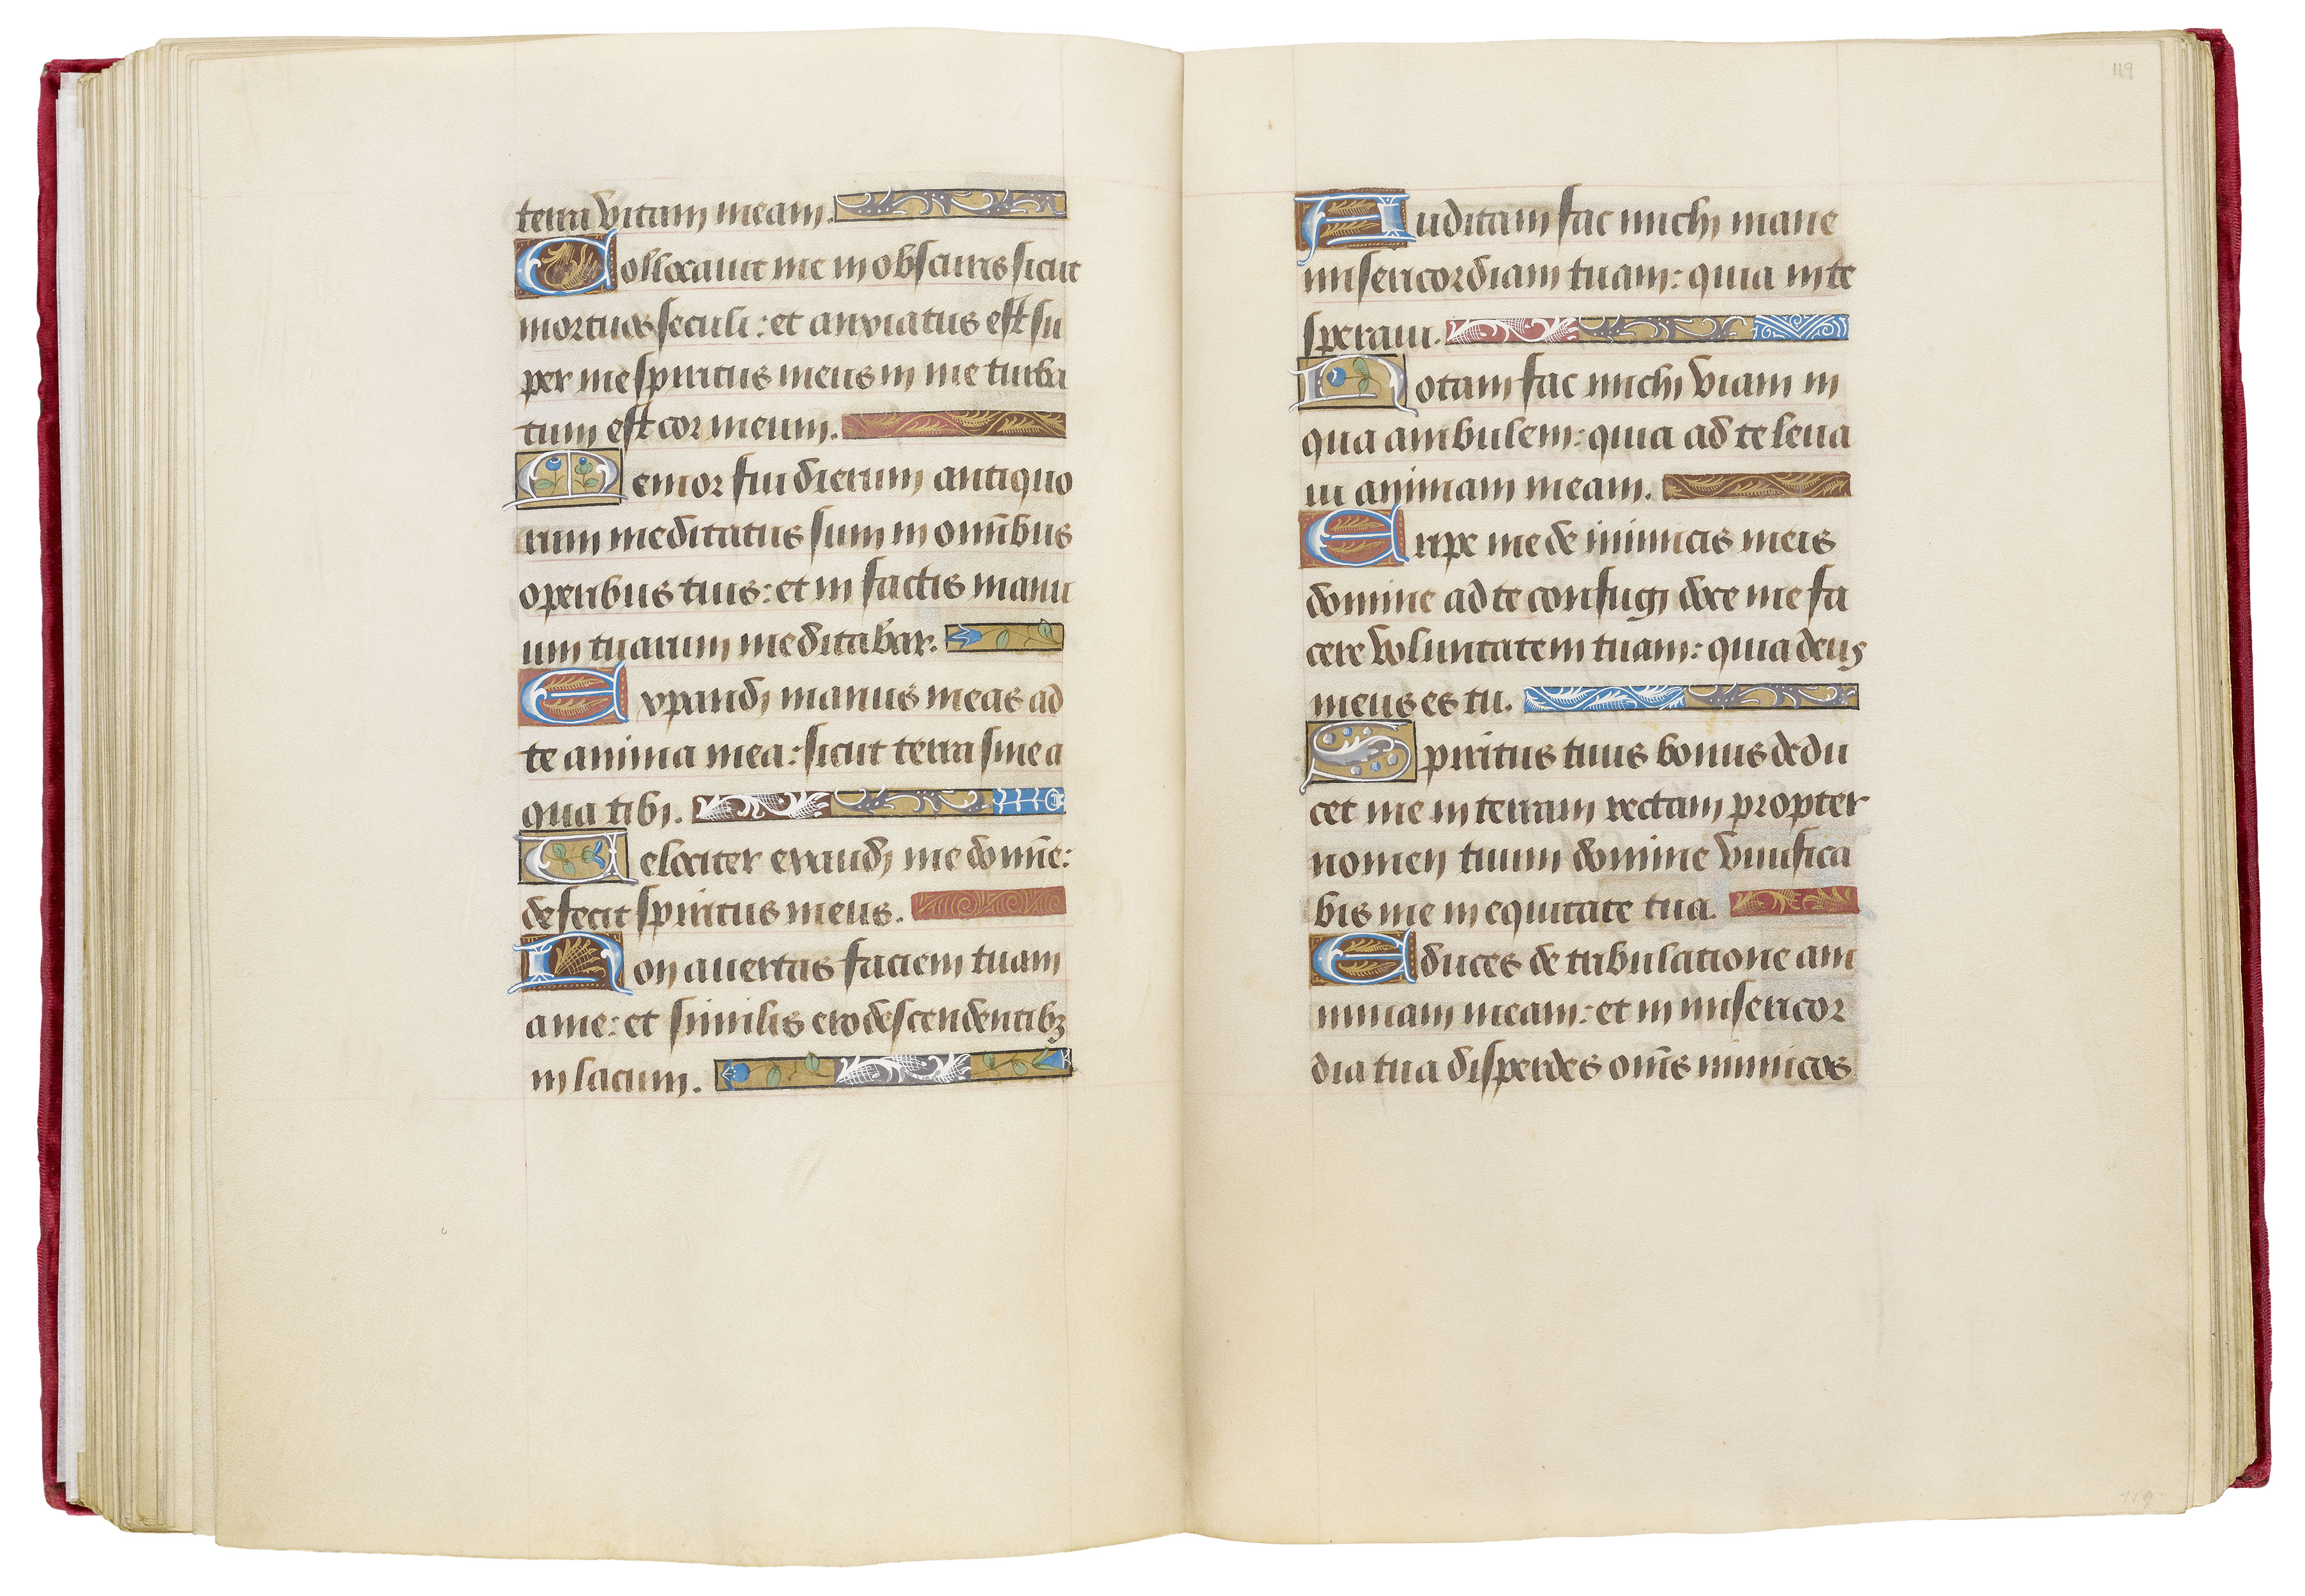 terra vitam meam.
Collocavit me in obscuris sicut
mortuos seculi: et anxiatus est su
per me spiritus meus in me turba
tum est cor meum.
Memor fui dierum antiquo
rum meditatus sum in omībus
operibus tuis: et in factis manu
um tuarum meditabar.
Expandi manus meas ad
te anima mea: sicut terra sine a
qua tibi.
Velociter exaudi me domīe:
defecit spiritus meus.
Non avertas faciem tuam
a me: et similis ero descendentibꝫ
in lacum.
119
Auditam fac michi mane
misericordiam tuam: quia in te
speravi.
Notam fac michi viam in
qua ambulem: quia ad te leva
vi animam meam.
Eripe me de inimicis meis
domine ad te confugi doce me fa
cere voluntatem tuam: quia deus
meus es tu.
Spiritus tuus bonus dedu
cet me in terram rectam propter
nomen tuum domine vivifica
bis me in equitate tua.
Educes de tribulatione ani
mam meam: et in misericor
dia tua disperdes om̄s inimicos
119